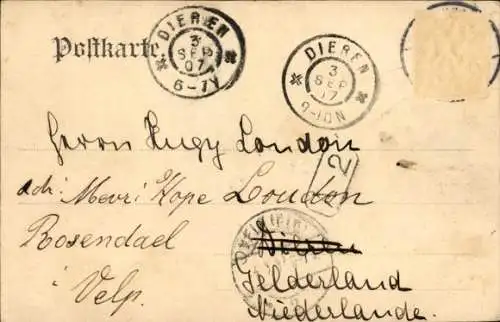 Postkarte.
DIEREN
3
SEP
07
6-7V
DIEREN
3
SEP
07
9-10N
Herrn Hugy Loudon
2
adr: Mevr: Hope Loudon
Rosendael
Velp.
Gelderland
Niederlande.